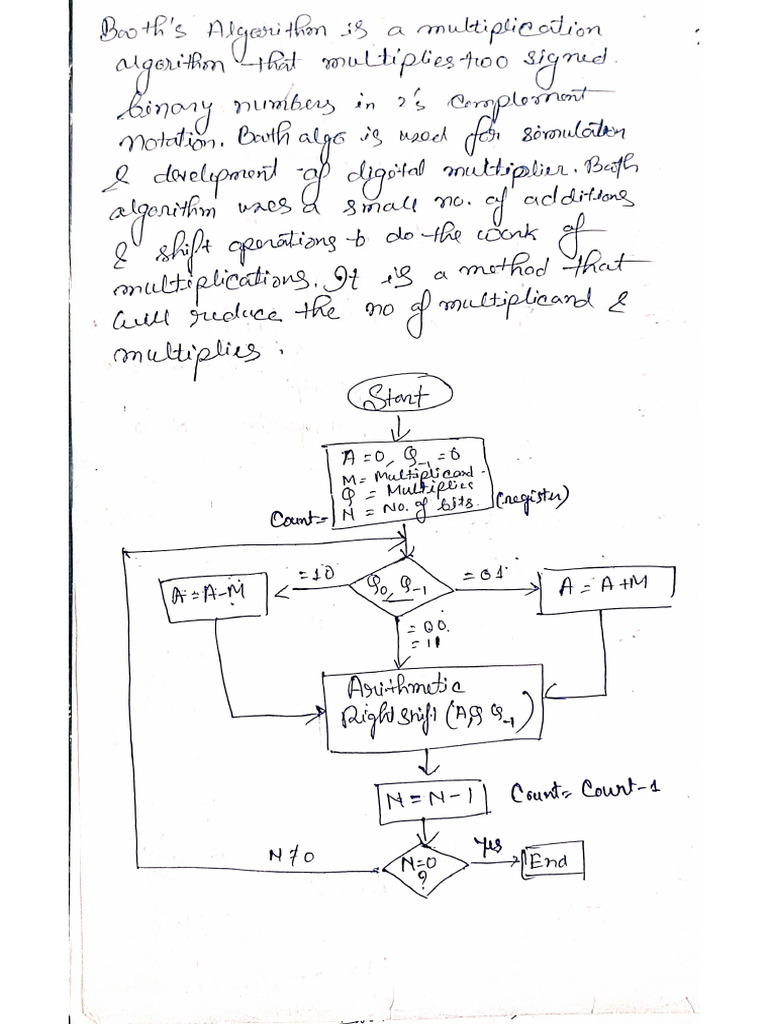 Booth's Algorithm is a multiplication
algorithm that multiplies two signed
binary numbers in 2's complement
notation. Booth algo is used for simulation
& development of digital multiplier. Booth
algorithm uses a small no. of additions
& shift operations to do the work of
multiplications. It is a method that
will reduce the no of multiplicand &
multiplies.
Start
A = 0, Q-1 = 0
M = Multiplicand
Q = Multiplies
Count = N = No. of bits. (register)
A = A-M
= 10
Q0, Q-1
= 01
A = A+M
= 00
= 11
Arithmetic
Right shift (A, Q, Q-1)
N = N-1
Count = Count-1
N≠0
N=0
?
Yes
End